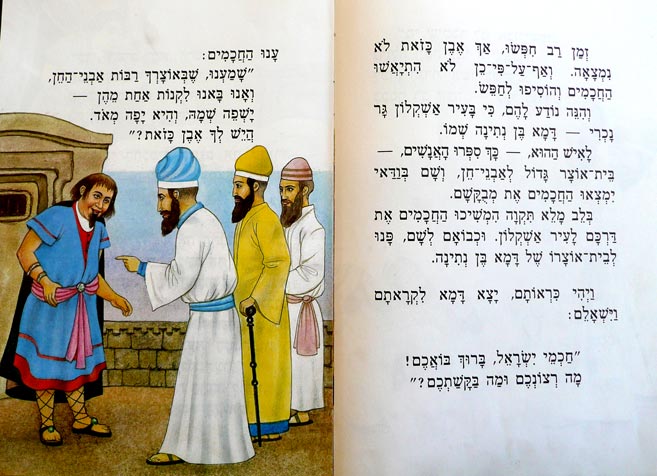 זְמַן רַב חִפְּשׂוּ, אַךְ אֶבֶן כָּזֹאת לֹא
נִמְצָאָה. וְאַף־עַל־פִּי־כֵן לֹא הִתְיָאֲשׁוּ
הַחֲכָמִים וְהוֹסִיפוּ לְחַפֵּשׂ.
וְהִנֵּה נוֹדַע לָהֶם, כִּי בָּעִיר אַשְׁקְלוֹן גָּר
נָכְרִי — דָּמָא בֶּן נְתִינָה שְׁמוֹ.
לָאִישׁ הַהוּא, — כָּךְ סִפְּרוּ הָאֲנָשִׁים, —
בֵּית־אוֹצָר גָּדוֹל לְאַבְנֵי־חֵן, וְשָׁם בְּוַדַּאי
יִמְצְאוּ הַחֲכָמִים אֶת מְבֻקָּשָׁם.
בְּלֵב מָלֵא תִּקְוָה הִמְשִׁיכוּ הַחֲכָמִים אֶת
דַּרְכָּם לָעִיר אַשְׁקְלוֹן. וּכְבוֹאָם לְשָׁם, פָּנוּ
לְבֵית־אוֹצָרוֹ שֶׁל דָּמָא בֶּן נְתִינָה.
וַיְהִי כִּרְאוֹתָם, יָצָא דָּמָא לִקְרָאתָם
וַיִּשְׁאָלֵם:
"חַכְמֵי יִשְׂרָאֵל, בָּרוּךְ בּוֹאֲכֶם!
מָה רְצוֹנְכֶם וּמַה בַּקָּשַׁתְכֶם?"
עָנוּ הַחֲכָמִים:
"שָׁמַעְנוּ, שֶׁבְּאוֹצָרְךָ רַבּוֹת אַבְנֵי־הַחֵן,
וְאָנוּ בָּאנוּ לִקְנוֹת אַחַת מֵהֶן —
יָשְׁפֵה שְׁמָהּ, וְהִיא יָפָה מְאֹד.
הֲיֵשׁ לְךָ אֶבֶן כָּזֹאת?"